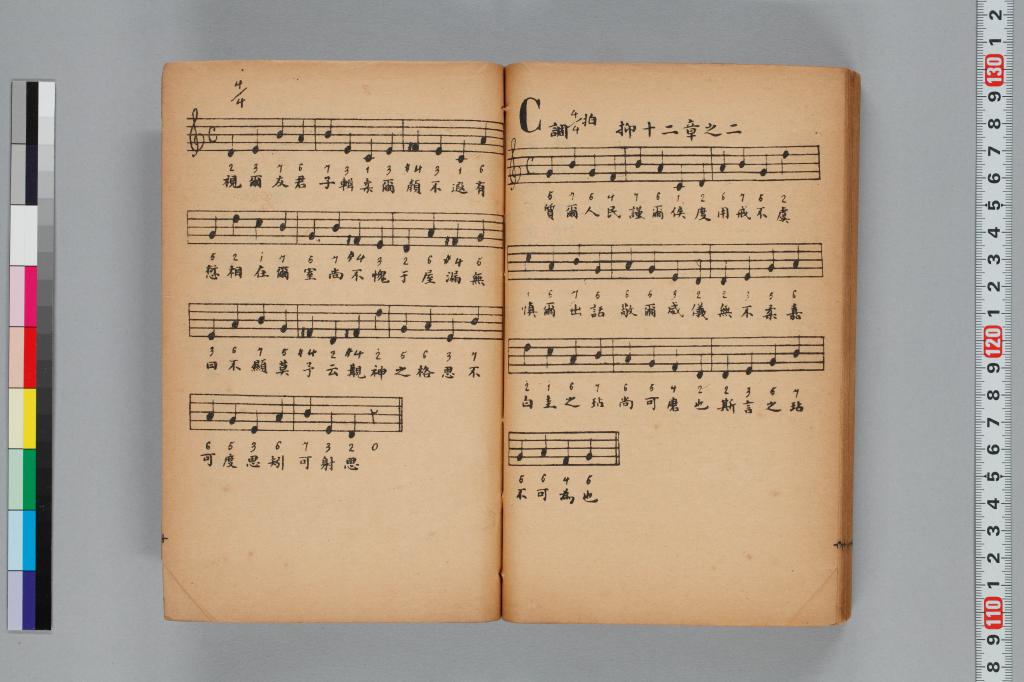 4/4
2 3 7 6 7 3 1 3 #4 3 1 6
視爾友君子輯柔爾顏不遐有
5 2 i 7 5 7 #4 3 2 6 #4 6
愆相在爾室尚不愧于屋漏無
3 6 7 5 #4 2 #4 2 5 6 3 7
曰不顯莫予云覯神之格思不
6 5 3 6 7 3 2 0
可度思矧可射思
C 調 4/4 拍 抑十二章之二
5 7 5 4 7 6 1 2 6 7 5 2
質爾人民謹爾侯度用戒不虞
1 6 7 5 6 5 3 2 2 3 5 6
慎爾出話敬爾威儀無不柔嘉
2 1 6 7 6 5 4 2 2 3 5 7
白圭之玷尚可磨也斯言之玷
5 6 4 5
不可為也
130
120
110